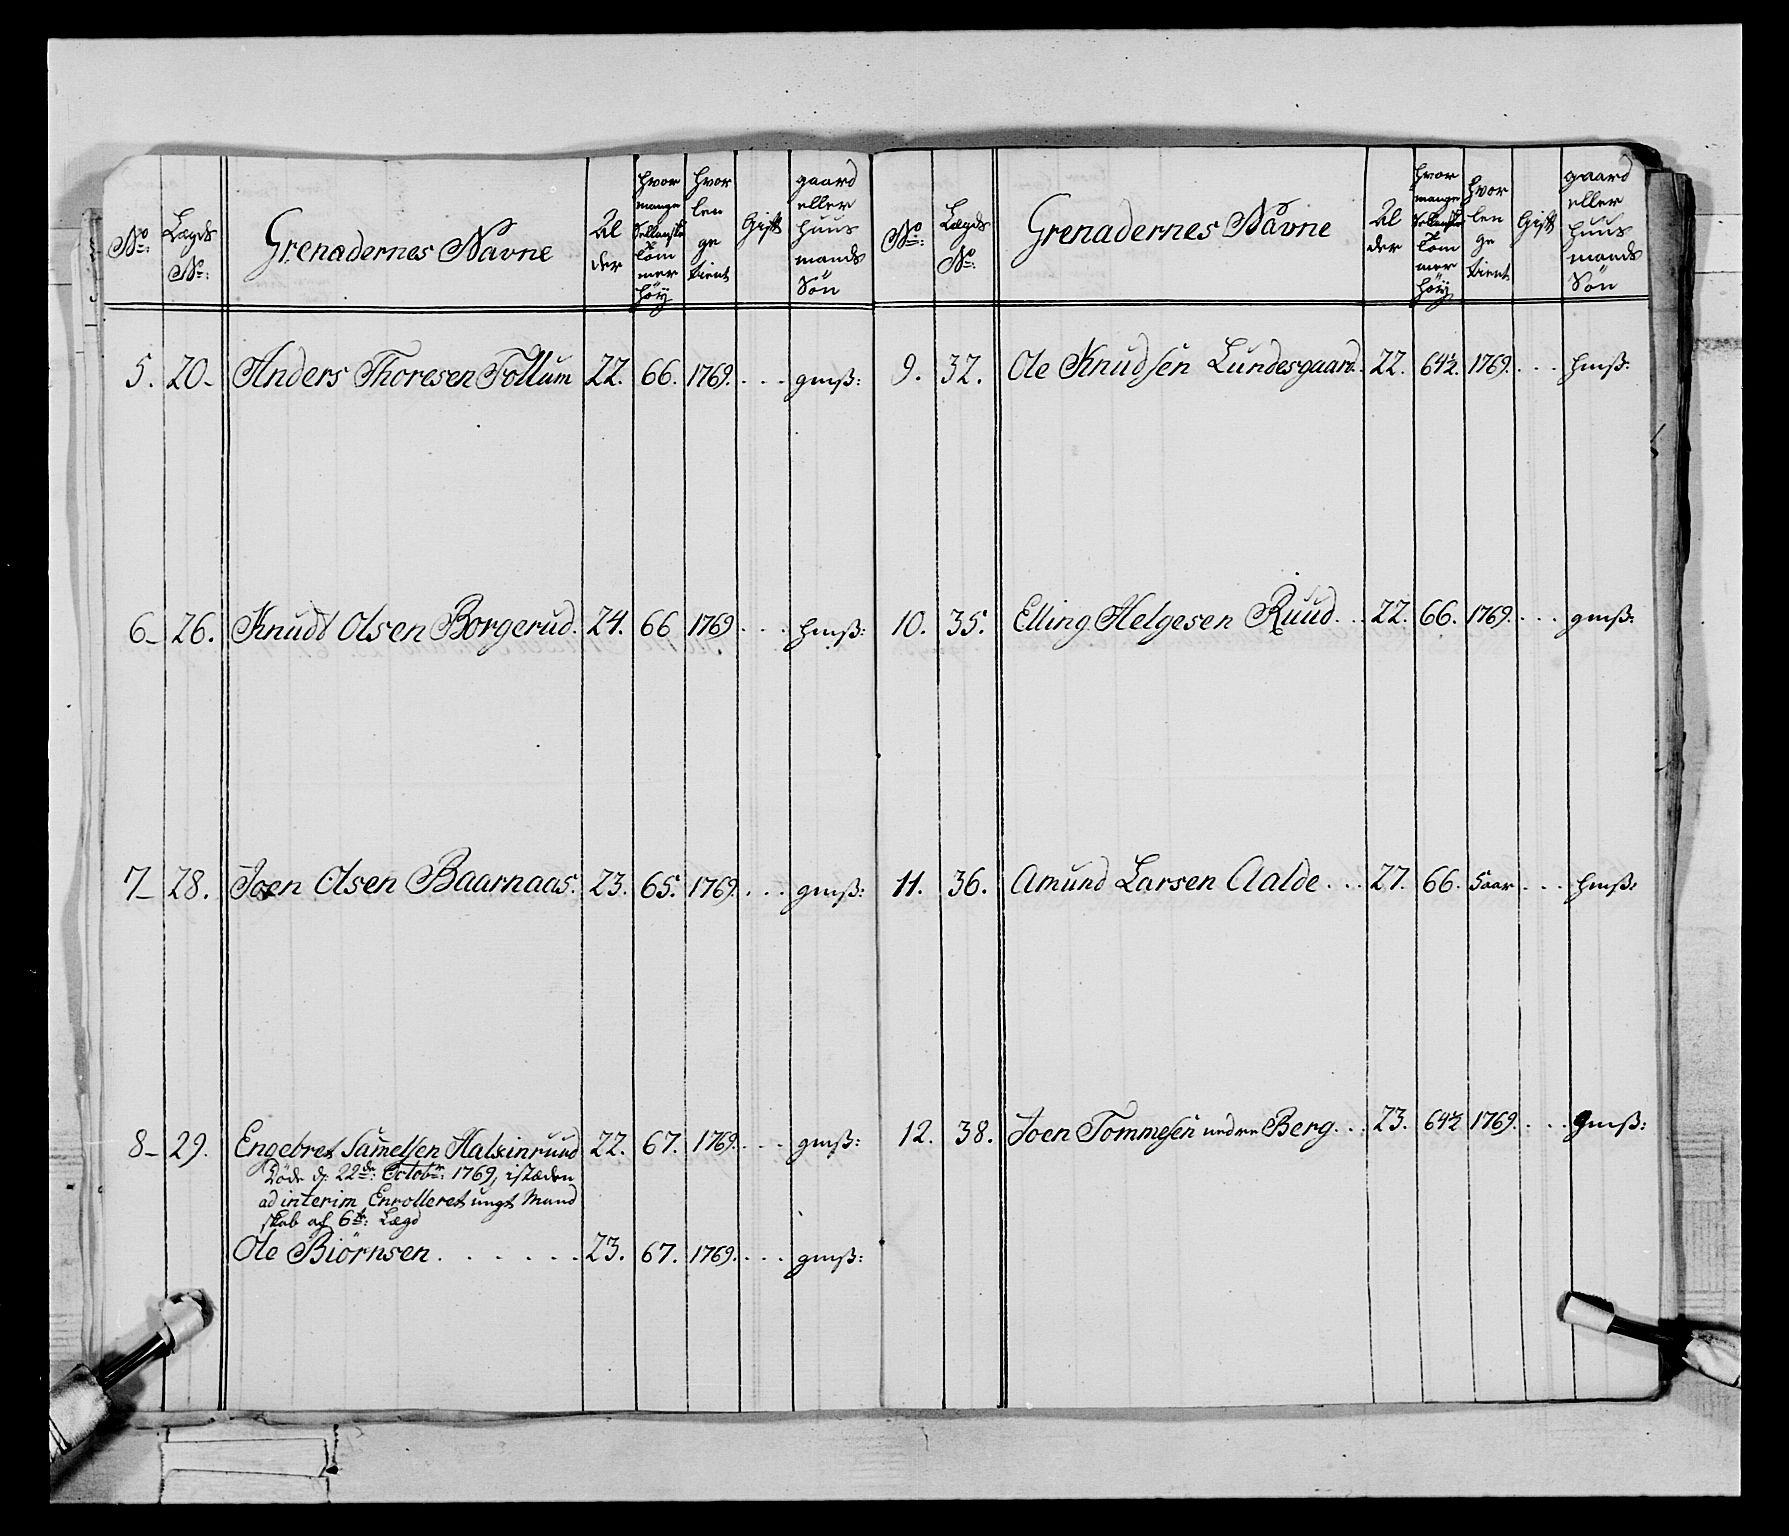 No: Lægds No: Grenadernes Navne Al der hvor mange Sellandske Tom mer höy hvor len ge tient Gift gaard eller huus mands Sön
5. 20 Anders Thoresen Follum 22. 66. 1769. . . . gmß:
6 26. Knudt Olsen Borgerud. 24. 66 1769 . . . hmß:
7 28. Joen Olsen Baarnaas. 23. 65. 1769. . . . gmß:
8 29. Engebret Samelsen Halsinruud 22. 67. 1769. . . . gmß:
Döde d: 22de: Octobr: 1769, istæden
ad interim Enrolleret ungt Mand
skab af 6te: Lægd
Ole Biörnsen . . . . . . 23. 67. 1769. . . . gmß:
No: Lægds No: Grenadernes Navne Al der hvor mange Sellandske Tom mer höy hvor len ge tient Gift gaard eller huus mands Sön
9. 32. Ole Knudsen Lundesgaard. 22. 64½. 1769. . . . hmß:
10. 35. Elling Helgesen Ruud. . . 22. 66. 1769. . . . gmß:
11. 36. Amund Larsen Aalde. . . 27. 66. 5 aar . . . hmß:
12. 38. Joen Tommesen nedre Berg. . . 23. 64½ 1769. . . . gmß: